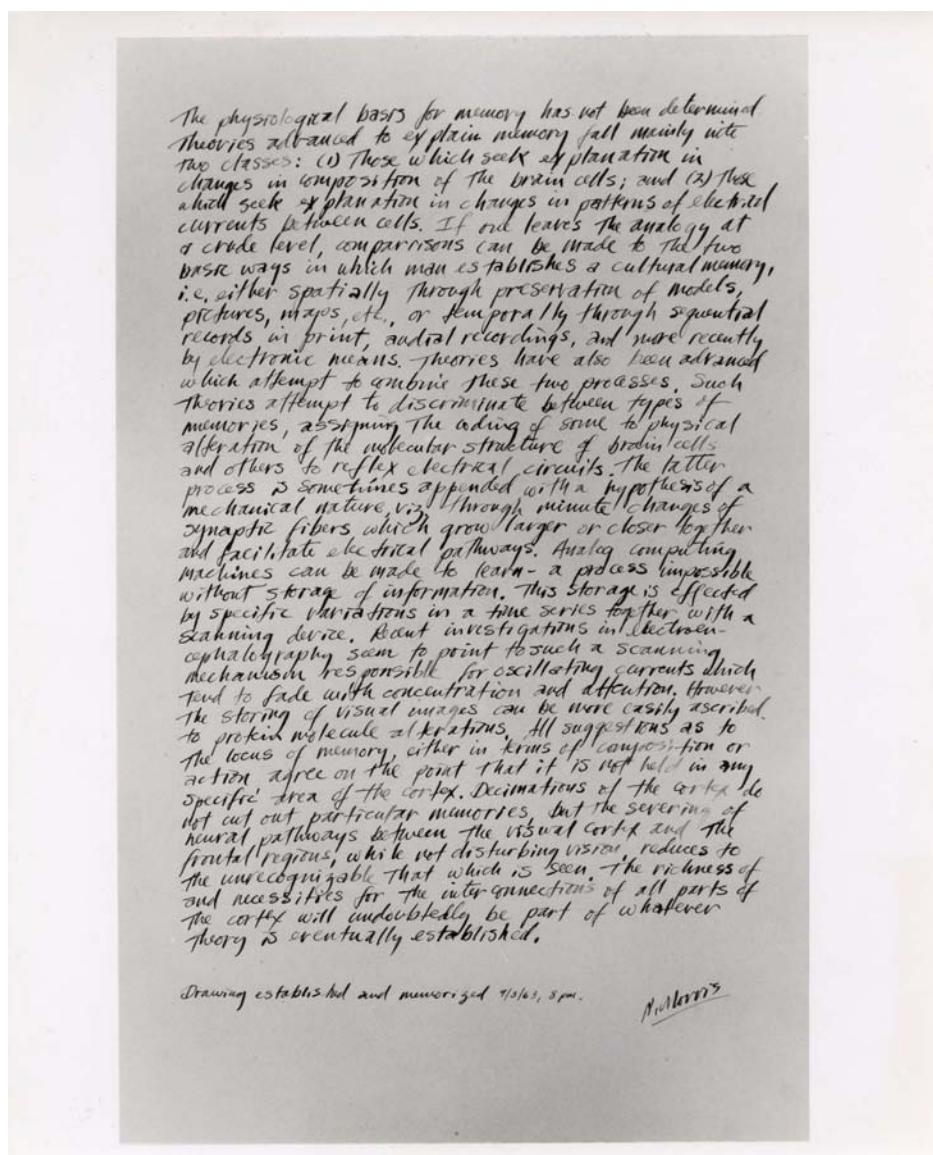 The physiological basis for memory has not been determined
Theories advanced to explain memory fall mainly into
two classes: (1) Those which seek explanation in
changes in composition of the brain cells; and (2) those
which seek explanation in changes in patterns of electrical
currents between cells. If one leaves the analogy at
a crude level, comparrisons can be made to the two
basic ways in which man establishes a cultural memory,
i.e. either spatially through preservation of models,
pictures, maps, etc., or temporally through sequential
records in print, audial recordings, and more recently
by electronic means. Theories have also been advanced
which attempt to combine these two processes. Such
theories attempt to discriminate between types of
memories, assigning the coding of some to physical
alteration of the molecular structure of brain cells
and others to reflex electrical circuits. The latter
process is sometimes appended with a hypothesis of a
mechanical nature, viz, through minute changes of
synaptic fibers which grow larger or closer together
and facilitate electrical pathways. Analog computing
machines can be made to learn - a process impossible
without storage of information. This storage is effected
by specific variations in a time series together with a
scanning device. Recent investigations in electroen-
cephalography seem to point to such a scanning
mechanism responsible for oscillating currents which
tend to fade with concentration and attention. However
the storing of visual images can be more easily ascribed
to protein molecule alterations. All suggestions as to
the locus of memory, either in terms of composition or
action agree on the point that it is not held in any
specific area of the cortex. Decimations of the cortex do
not cut out particular memories, but the severing of
neural pathways between the visual cortex and the
frontal regions, while not disturbing vision, reduces to
the unrecognizable that which is seen. The richness of
and necessities for the interconnections of all parts of
the cortex will undoubtedly be part of whatever
theory is eventually established.
Drawing established and memorized 9/3/63, 8 pm.
R. Morris